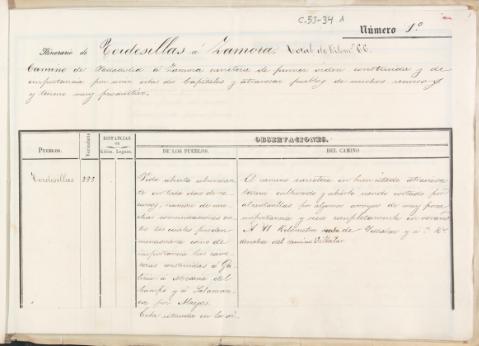 C.53-34 A
Número 1º
Itinerario de Tordesillas á Zamora. Total de Kilom. 66.
Camino de Valladolid á Zamora carretera de primer orden construida y de
importancia por unir estas dos Capitales y atravesar pueblos de muchos recursos
y terreno muy productivo.
PUEBLOS.
Vecindario
DISTANCIAS
EN
Kilóm. Leguas.
OBSERVACIONES.
DE LOS PUEBLOS.
DEL CAMINO
Tordesillas 999
Villa abierta
en toda clase de re-
cursos,
comunicaciones
las cuales pueden
mencionarse como de
importancia las carre-
teras construidas á Ga-
licia á Medina del
Campo y á Salaman-
ca por Alaejos.
Está situada en la o-
El camino carretera en buen estado atraviesa
terreno cultivado y abierto siendo cortado por
alcantarillas por algunos arroyos de muy poca
importancia y secos completamente en verano
A 11 Kilómetros
derecha del camino Villalar